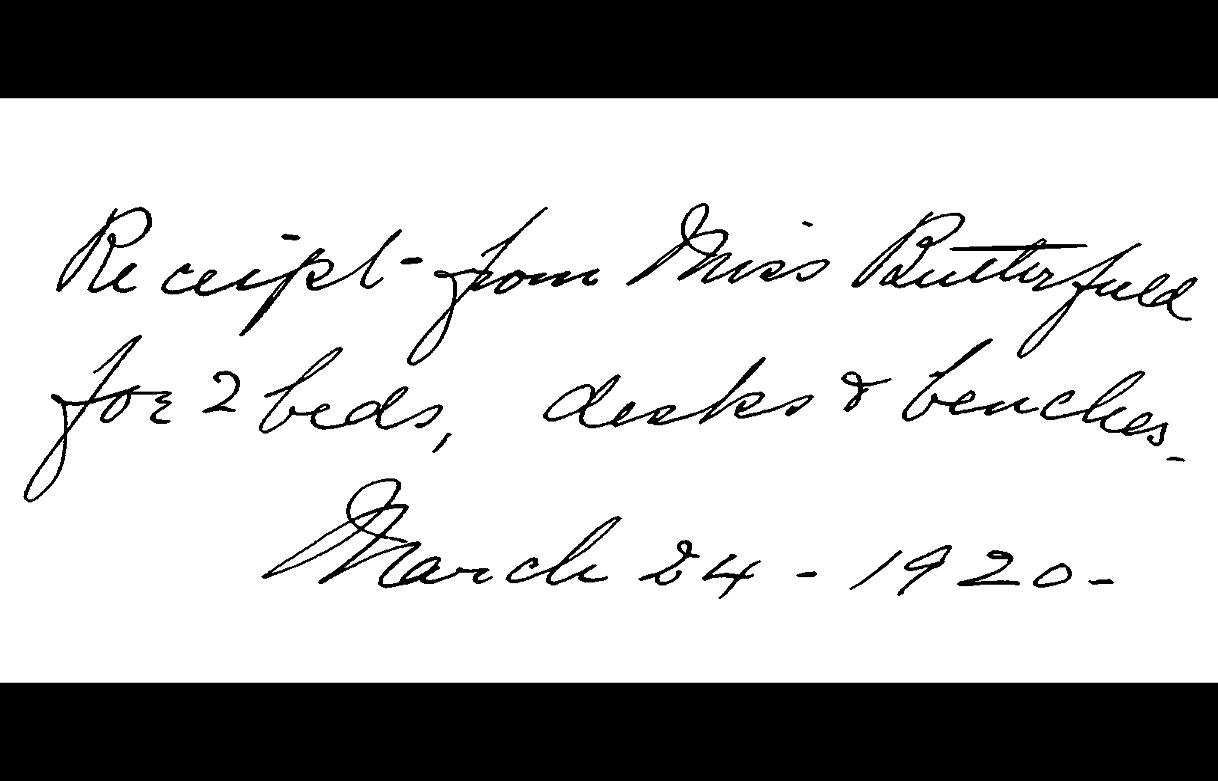 Receipt- from Miss Butterfield
for 2 beds, desks & benches_
March 24 - 1920-